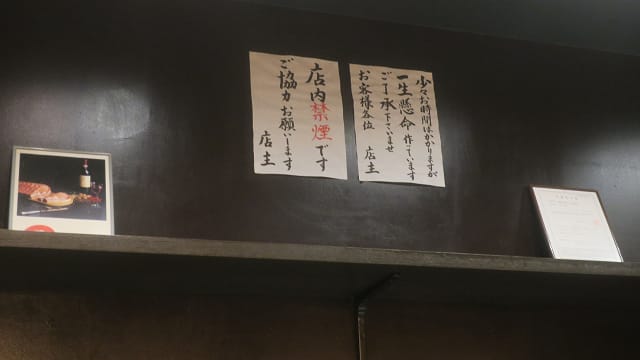 少々お時間はかかりますが
一生懸命作っています
ご了承下さいませ
お客様各位 店主
店内禁煙です
ご協力お願いします
店主